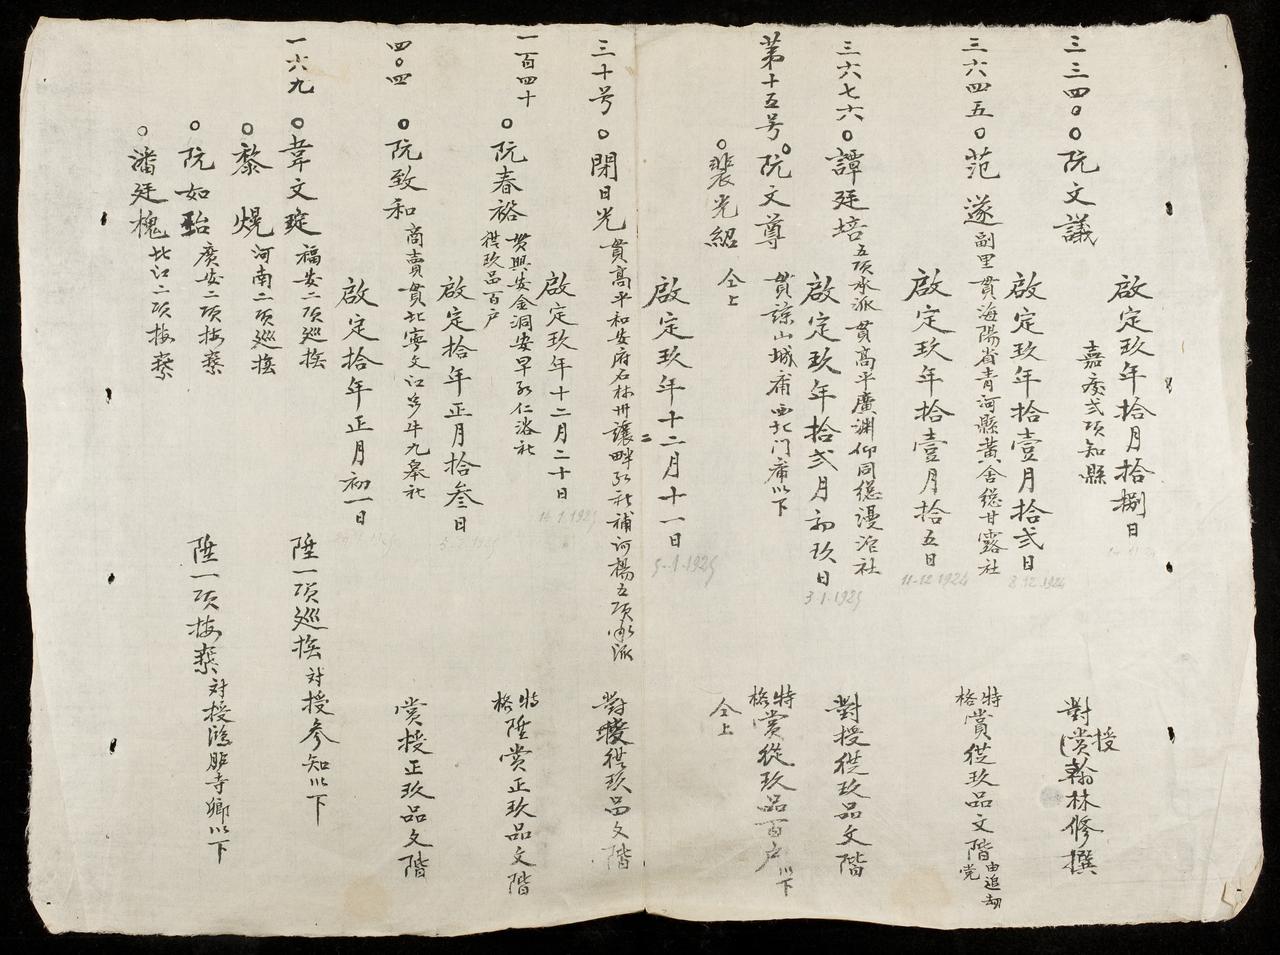 啟定玖年拾月拾捌日
三三四〇 〇阮文議 嘉慶弍項知縣 對授賞翰林修撰
啟定玖年拾壹月拾弍日
8.12.1924
三六四五 〇范遂 副里貫海陽省青河縣黃舍總甘露社 特格賞從玖品文階 由追劫党
啟定玖年拾壹月拾五日
11-12.1924
三六七六 〇譚廷培 五項承派貫高平廣淵仰同總謾泞社 對授從玖品文階
啟定玖年拾弍月初玖日
3.1.1925
第十五号 〇阮文尊 貫諒山城庯西北门庯以下 特格賞從玖品百户以下
〇裴光紹 仝上 仝上
啟定玖年十二月十一日
5-1-1925
三十号 〇閉日光 貫高平和安府石林州讓畔社補河楊五項承派 對授從玖品文階
啟定玖年十二月二十日
14.1.1925
一百四十 〇阮春裕 貫興安金洞安早仁洛社從玖品百户 特格陞賞正玖品文階
啟定拾年正月拾叁日
四〇四 〇阮致和 商賣貫北寧文江多牛九皋社 賞授正玖品文階
啟定拾年正月初一日
一六九 〇韋文琔 福安二項巡撫 陞一項巡撫对授参知以下
〇黎熀 河南二項巡撫
〇阮如珆 廣安二項按察 陞一項按察对授鴻胪寺鄉以下
〇潘廷槐 北江二項按察